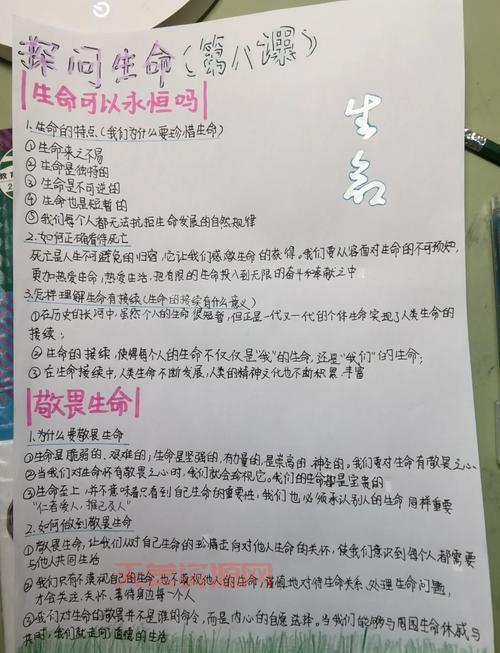 探问生命(第八课)
生命可以永恒吗
生命
1.生命的特点(我们为什么要珍惜生命)
①生命来之不易
②生命是独特的
③生命是不可逆的
④生命也是短暂的
⑤我们每个人都无法抗拒生命发展的自然规律
2.如何正确看待死亡
死亡是人生不可避免的归宿,它让我们感激生命的获得。我们要从容面对生命的不可预知,
更加热爱生命,热爱生活,把有限的生命投入到无限的奋斗和奉献之中
3.怎样理解生命有接续(生命的接续有什么意义)
①在历史的长河中,虽然个人的生命很短暂,但正是一代又一代的个体生命实现了人类生命的
接续;
②生命的接续,使得每个人的生命不仅仅是“我”的生命,还是“我们”的生命;
③在生命接续中,人类生命不断发展,人类的精神文化也不断积累、丰富
敬畏生命
1.为什么要敬畏生命
①生命是脆弱的、艰难的;生命是坚强的、有力量的,是崇高的、神圣的。我们要对生命有敬畏之心
②当我们对生命怀有敬畏之心时,我们就会珍视它。我们的生命都是宝贵的
③生命至上,并不意味着只看到自己生命的重要性,我们也必须承认别人的生命同样重要
“仁者爱人,推己及人”
2.如何做到敬畏生命
①敬畏生命,让我们从对自己生命的珍惜走向对他人生命的关怀,使我们意识到每个人都需要
与他人共同生活
②我们只有不漠视自己的生命,也不漠视他人的生命,谨慎地对待生命关系、处理生命问题,
才会关注、关怀、善待身边每一个人
③我们对生命的敬畏并不是谁的命令,而是内心的自愿选择。当我们能够与周围生命休戚与
共时,我们就走向道德的生活